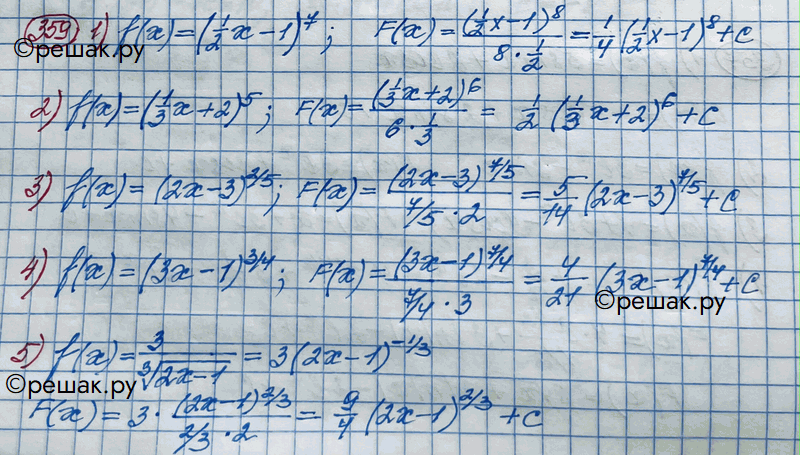 359 1) f(x)=(1/2 x-1)^7; F(x)=(1/2 x-1)^8/(8·1/2)=1/4(1/2 x-1)^8+C
2) f(x)=(1/3 x+2)^5; F(x)=(1/3 x+2)^6/(6·1/3)=1/2(1/3 x+2)^6+C
3) f(x)=(2x-3)^2/5; F(x)=(2x-3)^7/5/(7/5·2)=5/14(2x-3)^7/5+C
4) f(x)=(3x-1)^3/4; F(x)=(3x-1)^7/4/(7/4·3)=4/21(3x-1)^7/4+C
©решак.ру
5) f(x)=3/∛(2x-1)=3(2x-1)^-1/3
©решак.ру
F(x)=3·(2x-1)^2/3/(2/3·2)=9/4(2x-1)^2/3+C
©решак.ру